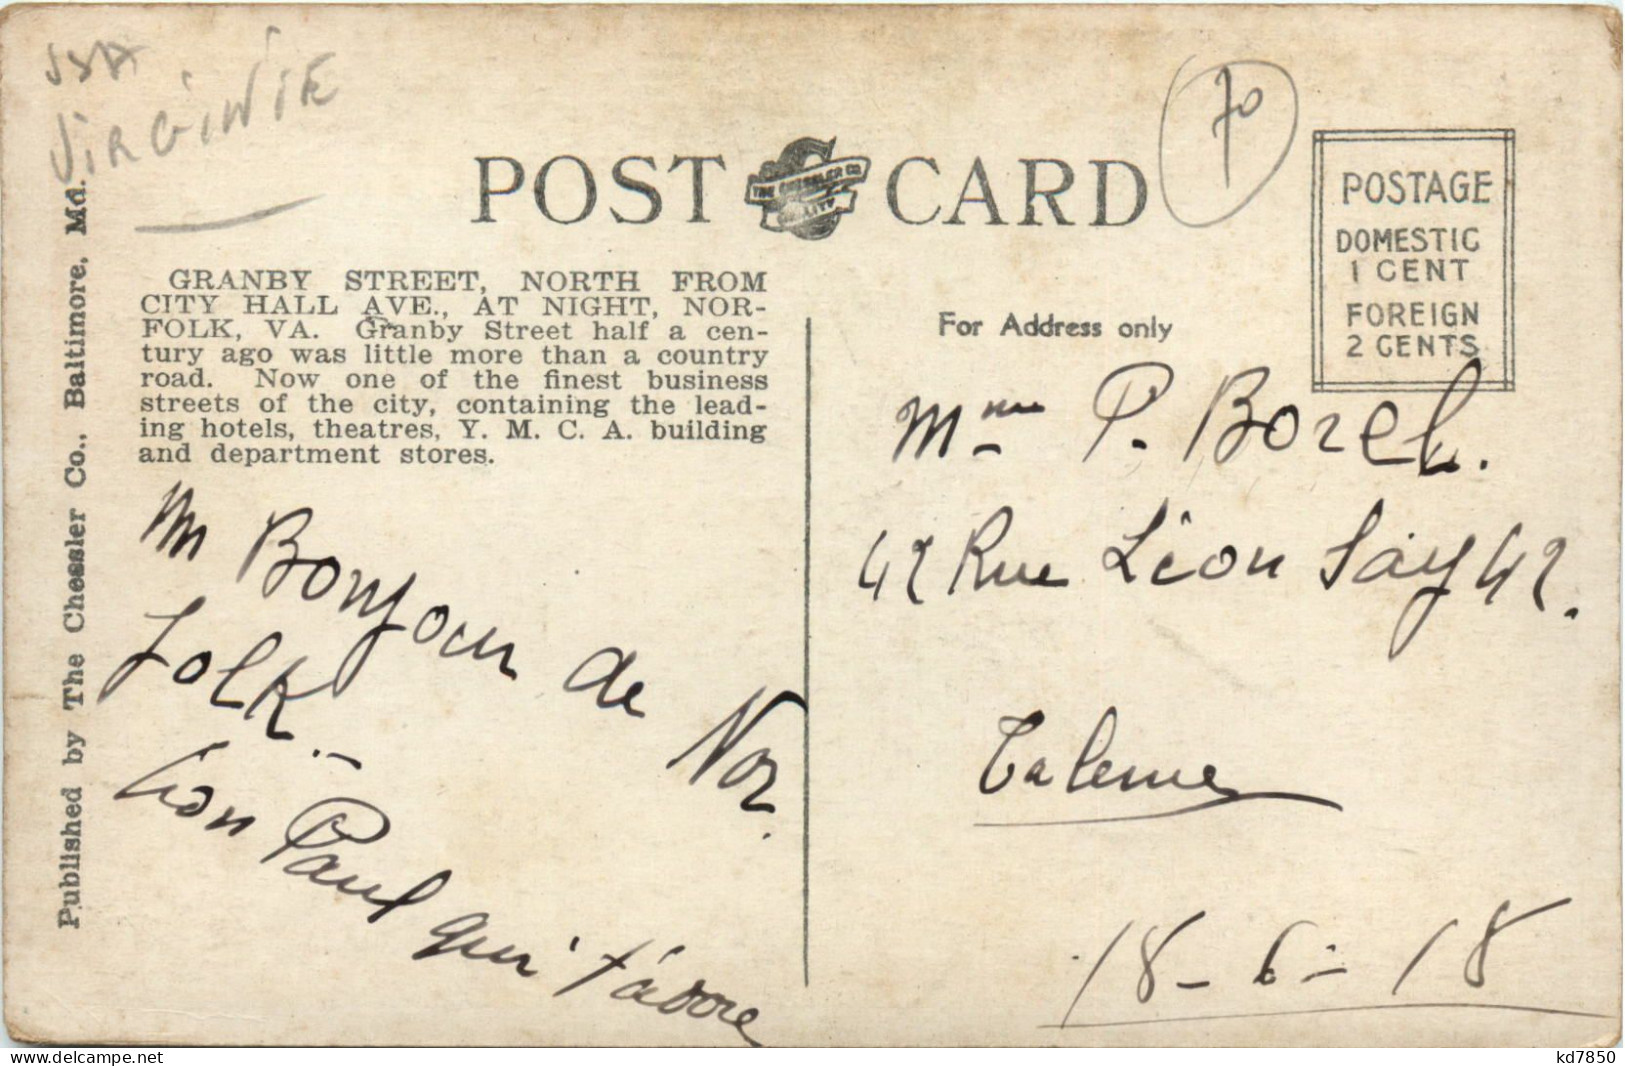 USA
VIRGINIE
70
POST CARD
THE CHESSLER CO.
QUALITY
POSTAGE
DOMESTIC
1 CENT
FOREIGN
2 CENTS
Published by The Chessler Co., Baltimore, Md.
GRANBY STREET, NORTH FROM
CITY HALL AVE., AT NIGHT, NOR-
FOLK, VA. Granby Street half a cen-
tury ago was little more than a country
road. Now one of the finest business
streets of the city, containing the lead-
ing hotels, theatres, Y. M. C. A. building
and department stores.
Bonjour de Nor
folk.-
ton Paul qui t'adore
For Address only
Mme P. Borel.
42 Rue Léon Say 42.
Talence
18-6-18
www.delcampe.net
kd7850